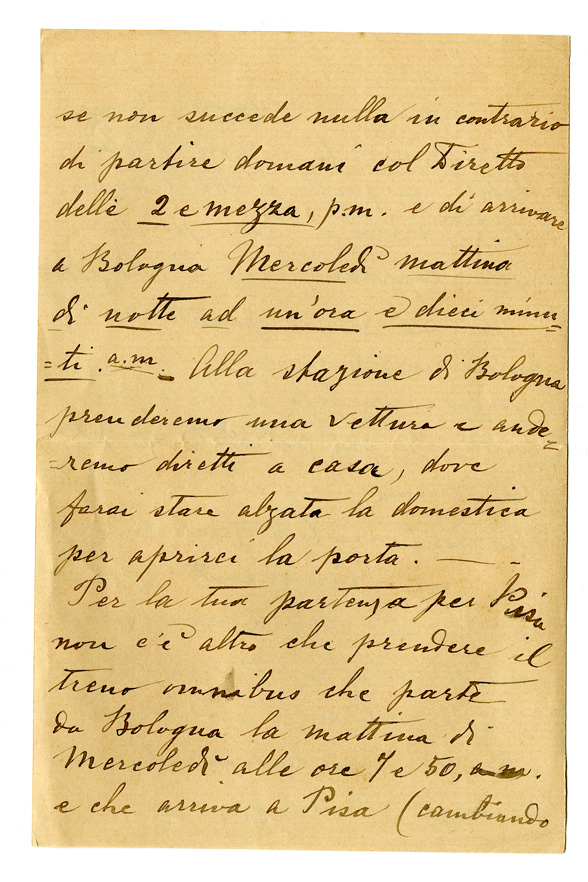 se non succede nulla in contrario
di partire domani col Diretto
delle 2 e mezza, p.m. e di arrivare
a Bologna Mercoledì mattina
di notte ad un'ora e dieci minu=
=ti. a.m. Alla stazione di Bologna
prenderemo una vettura e ande=
=remo diretti a casa, dove
farai stare alzata la domestica
per aprirci la porta. — -
Per la tua partenza per Pisa
non c'è altro che prendere il
treno omnibus che parte
da Bologna la mattina di
Mercoledì alle ore 7 e 50, a.m.
e che arriva a Pisa (cambiando